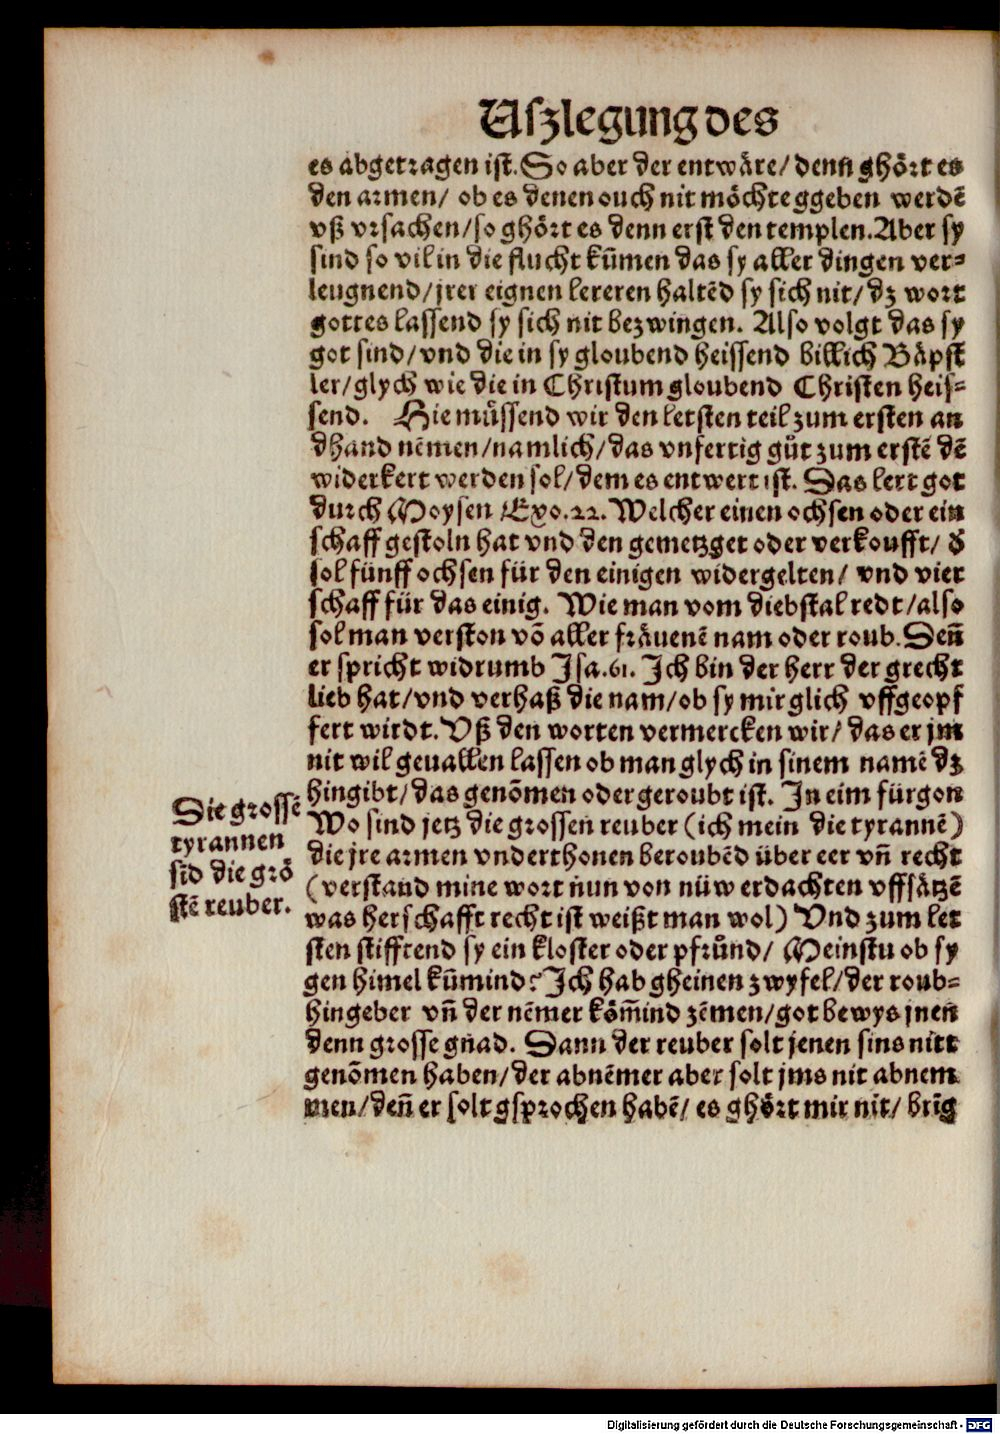 Uſzlegung des
es abgetragen iſt. So aber der entwäre/ denn ghört es
den armen/ ob es denen ouch nit möchte ggeben werdē
vß vrſachen/ſo ghört es denn erſt den templen. Aber ſy
ſind ſo vil in die flucht kūmen das ſy aller dingen ver⸗
leugnend/jrer eignen lereren haltēd ſy ſich nit/ dz wort
gottes laſſend ſy ſich nit bezwingen. Alſo volgt das ſy
got ſind/vnd die in ſy gloubend heiſſend billich Bäpſt
ler/glych wie die in Chriſtum gloubend Chriſten heiſ⸗
ſend. Hie müſſend wir den letſten teil zum erſten an
dhand nēmen/namlich/das vnfertig gůt zum erſtē dē
widerkert werden ſol/dem es entwert iſt. Das lert got
durch Moyſen /Exo.22. Welcher einen ochſen oder ein
ſchaff geſtoln hat vnd den gemetzget oder verkoufft/ d̄
ſol fünff ochſen für den einigen widergelten/ vnd vier
ſchaff für das einig. Wie man vom diebſtal redt/alſo
ſol man verſton vō aller fräuenē nam oder roub. Deñ
er ſpricht widrumb Jſa.61. Ich bin der herr der grecht
lieb hat/vnd verhaß die nam/ob ſy mir glich vffgeopf
fert wirdt. Vß den worten vermercken wir/ das er jm
nit wil geuallen laſſen ob man glych in ſinem namē dz
hingibt/das genōmen oder geroubt iſt. In eim fürgon
Wo ſind jetz die groſſen reuber (ich mein die tyrannē)
die jre armen vnderthonen beroubēd über eer vñ recht
(verſtand mine wort nun von nüw erdachten vffſätzē
was herſchafft recht iſt weißt man wol) Vnd zum let
ſten ſtifftend ſy ein kloſter oder pfrůnd/ Meinſtu ob ſy
gen himel kūmind? Ich hab gheinen zwyfel/der roub⸗
hingeber vñ der nēmer köm̄ind zēmen/got bewys jnen
denn groſſe gnad. Dann der reuber ſolt jenen ſins nitt
genōmen haben/der abnēmer aber ſolt jms nit abnem
men/deñ er ſolt gſprochen habē/ es ghört mir nit/ brīg
Die groſſē
tyrannen
ſid die grö
ſtē reuber.
Digitalisierung gefördert durch die Deutsche Forschungsgemeinschaft - DFG